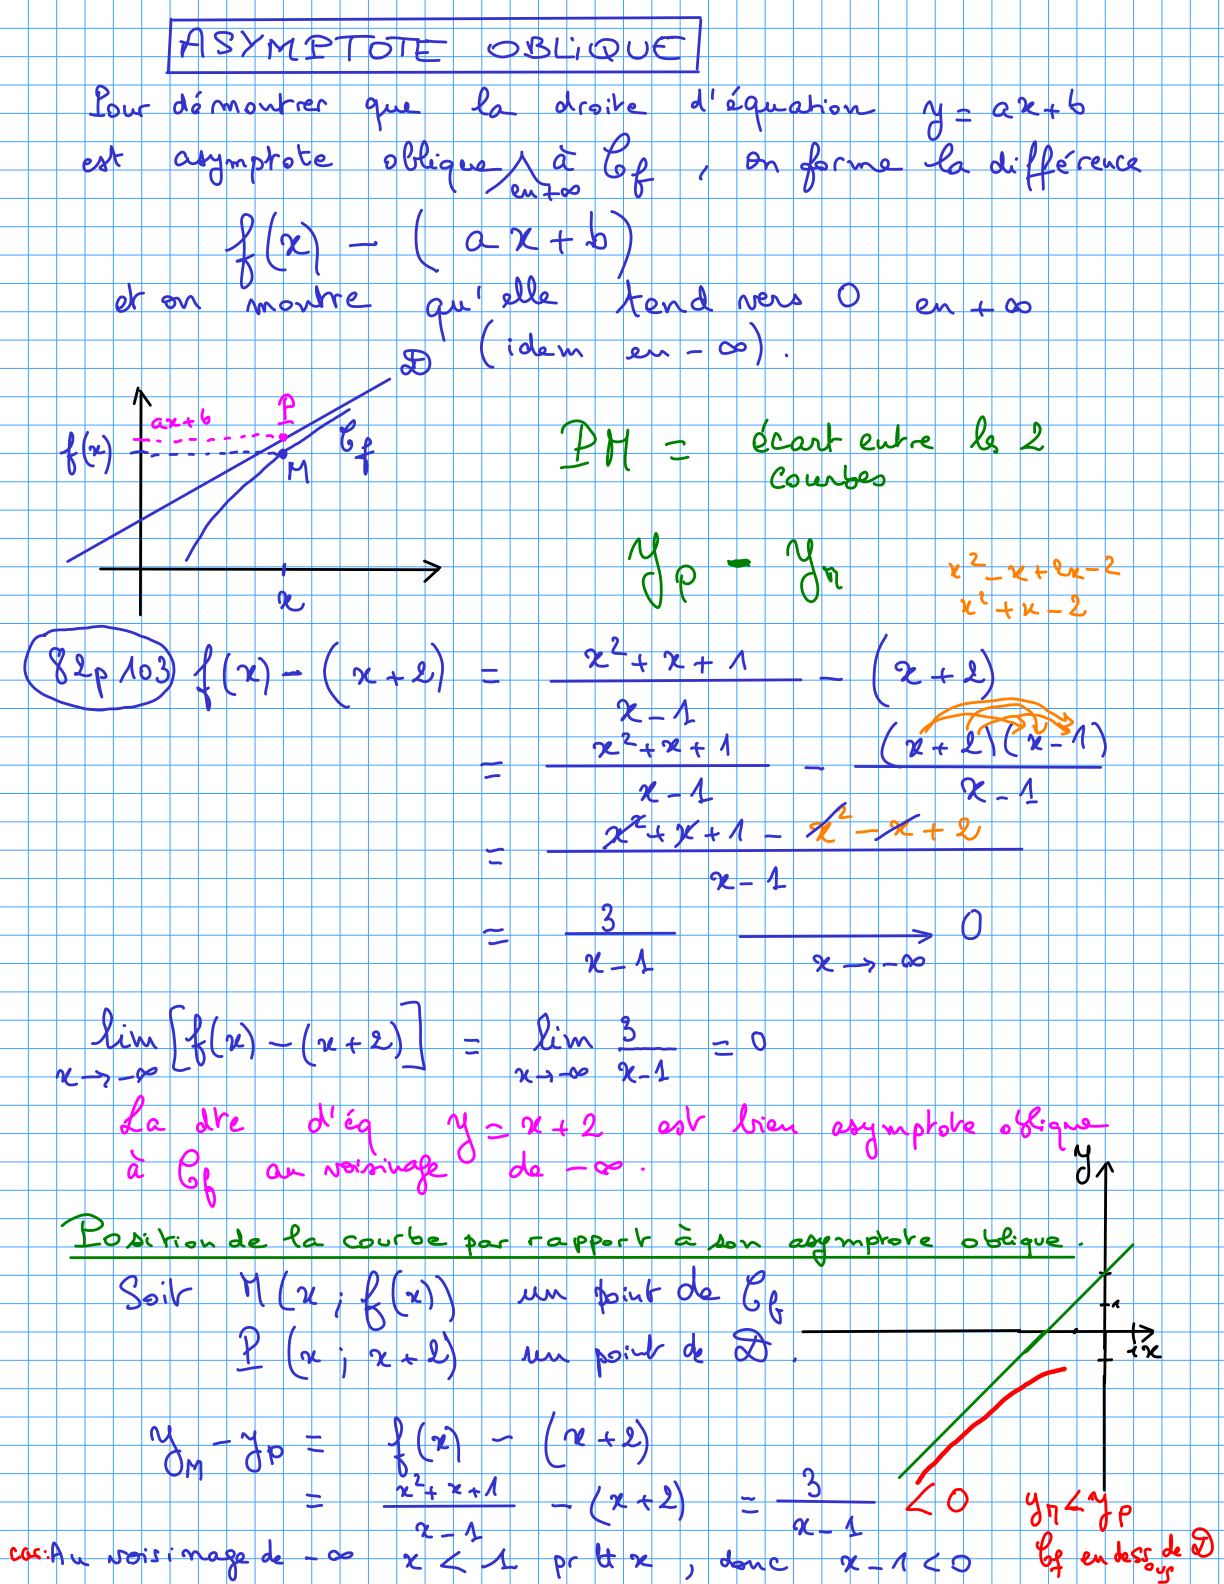 ASYMPTOTE OBLIQUE
Pour démontrer que la droite d'équation y = ax+b
est asymptote oblique à Cf , on forme la différence
en +∞
f(x) - ( ax+b)
et on montre qu'elle tend vers 0 en +∞
(idem en -∞).
D
ax+b P
f(x) Cf
M
PM = écart entre les 2
courbes
yP - yM
x² - x + 2x - 2
x² + x - 2
x
82p103 f(x) - (x+2) = (x²+x+1)/(x-1) - (x+2)
= (x²+x+1)/(x-1) - (x+2)(x-1)/(x-1)
= (x²+x+1 - x² - x + 2)/(x-1)
= 3/(x-1) → 0
x→-∞
lim [f(x) - (x+2)] = lim 3/(x-1) = 0
x→-∞ x→-∞
La dte d'éq y = x+2 est bien asymptote oblique
à Cf au voisinage de -∞.
y
Position de la courbe par rapport à son asymptote oblique.
Soit M(x ; f(x)) un point de Cf
1
P (x ; x+2) un point de D.
1 x
yM - yP = f(x) - (x+2)
= (x²+x+1)/(x-1) - (x+2) = 3/(x-1) < 0 yM < yP
car: Au voisinage de -∞ x < 1 pr tt x , donc x-1 < 0
Cf en dessous de D